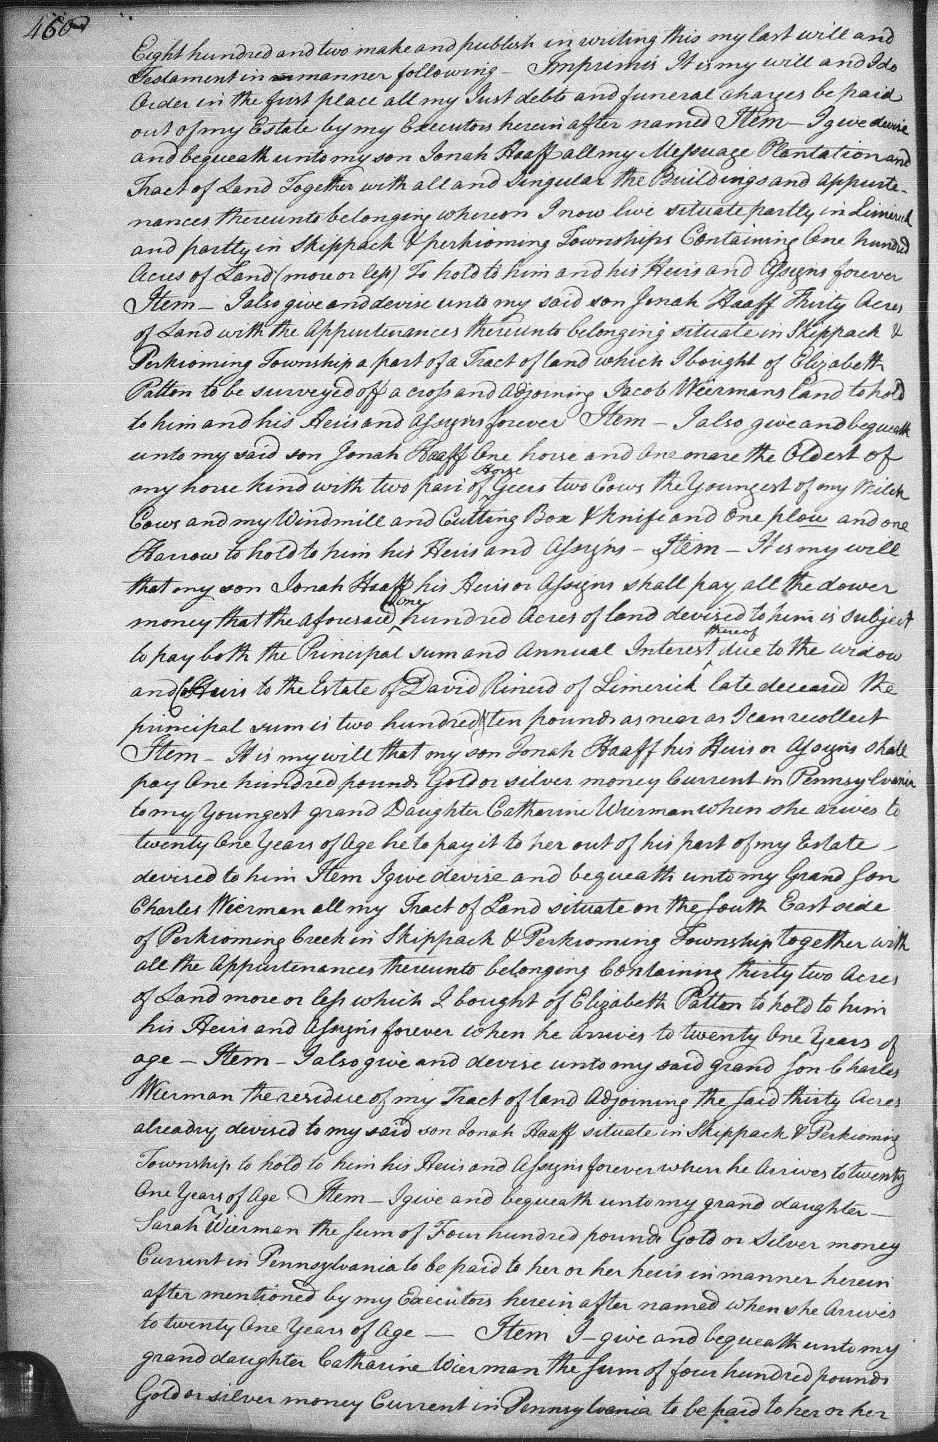 460
Eight hundred and two make and publish in writing this my last will and
Testament in manner following – Imprimis It is my will and I do
Order in the first place all my Just debts and funeral charges be paid
out of my Estate by my Executors herein after named Item – I give devise
and bequeath unto my son Jonah Haaff all my Messuage Plantation and
Tract of Land Together with all and Singular the Buildings and appurte-
nances thereunto belonging whereon I now live situate partly in Limerick
and partly in Skippack & perkioming Townships Containing One hundred
Acres of Land (more or less) To hold to him and his Heirs and Assigns forever
Item – I also give and devise unto my said son Jonah Haaff Thirty Acres
of Land with the Appurtenances thereunto belonging situate in Skippack &
Perkioming Township a part of a Tract of land which I bought of Elizabeth
Patton to be surveyed off a cross and Adjoining Jacob Weirmans Land to hold
to him and his Heirs and Assigns forever Item – I also give and bequeath
unto my said son Jonah Haaff One horse and One mare the Oldest of
my horse kind with two pair of Horse Geers two Cows the Youngest of my Milch
Cows and my Windmill and Cutting Box & Knife and One plow and one
Harrow to hold to him his Heirs and Assigns – Item – It is my will
that my son Jonah Haaff his Heirs or Assigns shall pay all the dower
money that the aforesaid one hundred Acres of land devised to him is subject
to pay both the Principal sum and Annual Interest thereof due to the widow
and Heirs to the Estate of David Rinerd of Limerick late deceased the
principal sum is two hundred & ten pounds as near as I can recollect
Item – It is my will that my son Jonah Haaff his Heirs or Assigns shall
pay One hundred pounds Gold or silver money Current in Pennsylvania
to my Youngest grand Daughter Catharine Wierman when she arives to
twenty One Years of Age he to pay it to her out of his part of my Estate –
devised to him Item I give devise and bequeath unto my Grand Son
Charles Wierman all my Tract of Land situate on the South East side
of Perkioming Creek in Skippack & Perkioming Township together with
all the Appurtenances thereunto belonging Containing thirty two Acres
of Land more or less which I bought of Elizabeth Patton to hold to him
his Heirs and Assigns forever when he arrives to twenty One Years of
age – Item – I also give and devise unto my said grand Son Charles
Wierman the residue of my Tract of land Adjoining the said thirty Acres
already devised to my said son Jonah Haaff situate in Skippack & Perkioming
Township to hold to him his Heirs and Assigns forever when he Arrives to twenty
One Years of Age Item – I give and bequeath unto my grand daughter –
Sarah Wierman the Sum of Four hundred pounds Gold or Silver money
Current in Pennsylvania to be paid to her or her heirs in manner herein
after mentioned by my Executors herein after named when she Arrives
to twenty One Years of Age – Item I – give and bequeath unto my
grand daughter Catharine Wierman the Sum of four hundred pounds
Gold or silver money Current in Pennsylvania to be paid to her or her